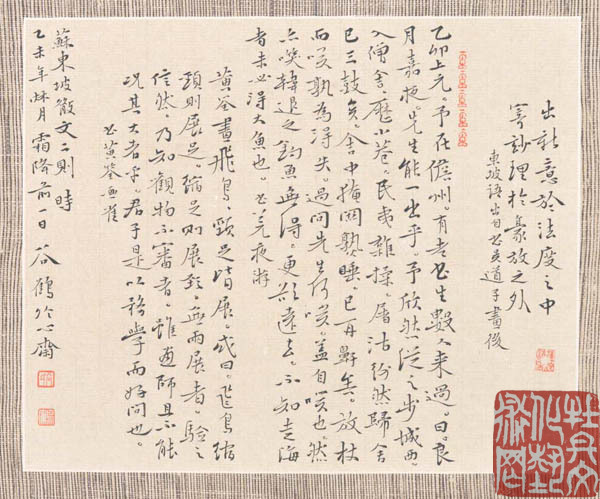 出新意於法度之中
寄妙理於豪放之外
東坡語出自書吳道子畫後
乙卯上元。予在儋州。有老書生數人來過。曰。良
月嘉夜。先生能一出乎。予欣然從之步城西。
入僧舍。歷小巷。民夷雜揉。屠沽紛然歸舍
已三鼓矣。舍中掩關熟睡。已再鼾矣。放杖
而笑。孰為得失。過問先生何笑。蓋自笑也。然
亦笑韓退之釣魚無得。更欲遠去。不知走海
者未必得大魚也。書元夜游
黃筌畫飛鳥。頸足皆展。或曰。飛鳥縮
頸則展足。縮足則展頸。無兩展者。驗之
信然。乃知觀物不審者。雖畫師且不能
況其大者乎。君子是以務學而好問也。
書黃筌畫雀
蘇東坡散文二則 時
乙未年秋月霜降前一日 谷鶴於心齋
牡丹文化藝術网